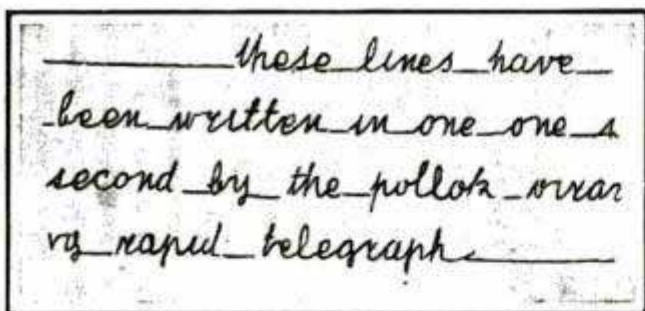 these lines have
been written in one one s
second by the pollok virar
vg rapid telegraph